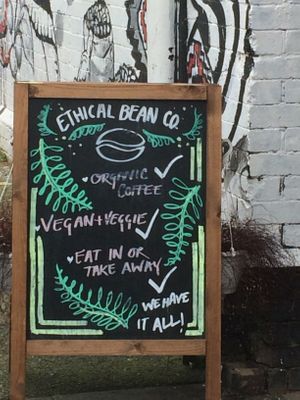 ETHICAL BEAN CO.
ORGANIC
COFFEE
VEGAN+VEGGIE
EAT IN OR
TAKE AWAY
WE HAVE
IT ALL!